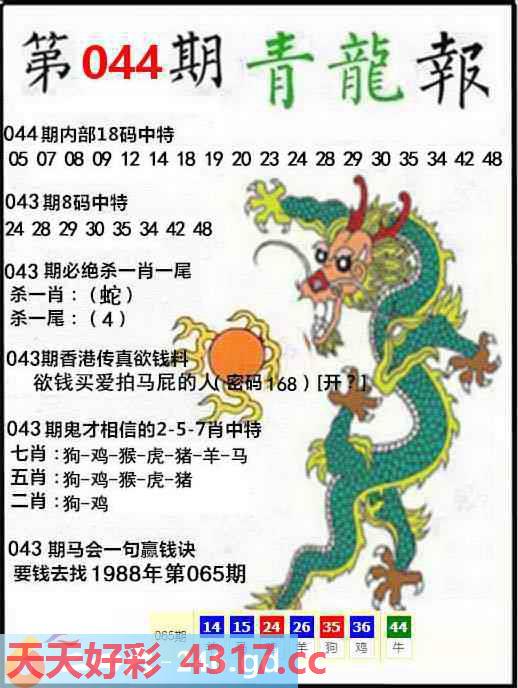 第044期 青龍報
044期内部18码中特
05 07 08 09 12 14 18 19 20 23 24 28 29 30 35 34 42 48
043期8码中特
24 28 29 30 35 34 42 48
043 期必绝杀一肖一尾
杀一肖：（蛇）
杀一尾：（4）
043期香港传真欲钱料
欲钱买爱拍马屁的人(密码168）[开？]
043期鬼才相信的2-5-7肖中特
七肖：狗-鸡-猴-虎-猪-羊-马
五肖：狗-鸡-猴-虎-猪
二肖：狗-鸡
043 期马会一句赢钱诀
要钱去找1988年第065期
065期 14 15 24 26 35 36 44
羊 狗 鸡 牛
天天好彩 4317.cc